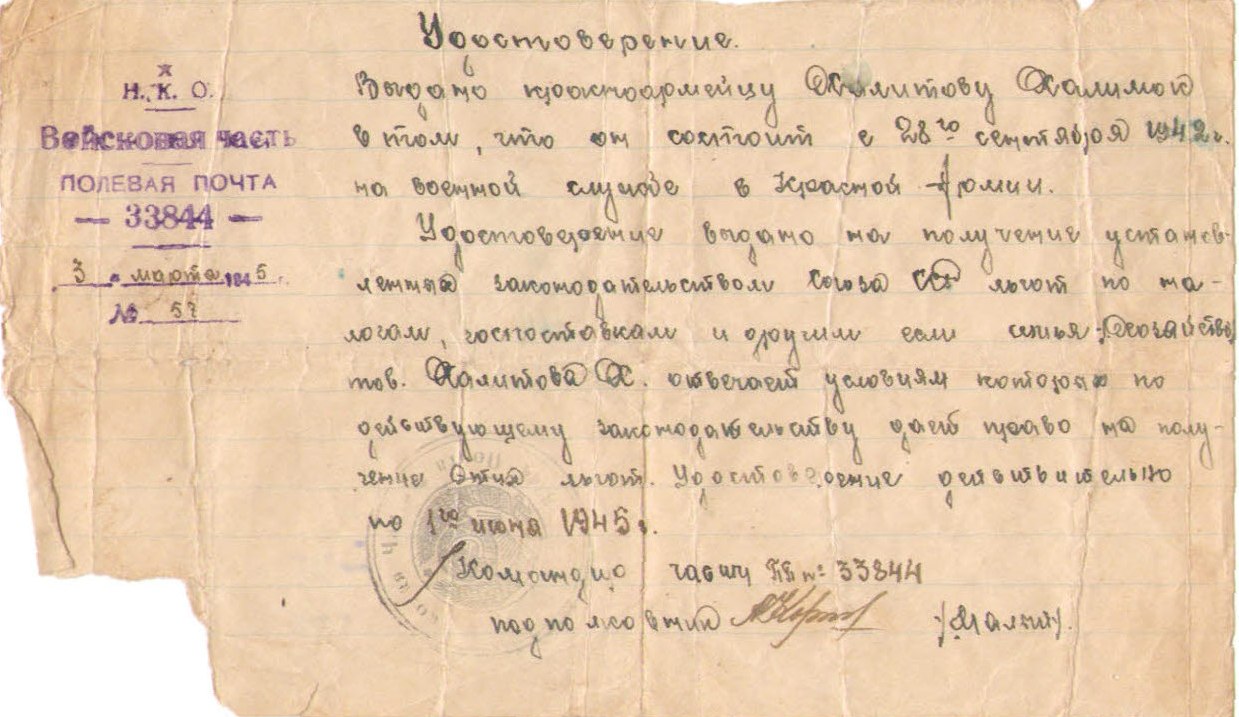 Удостоверение.
Н. К. О.
Войсковая часть
ПОЛЕВАЯ ПОЧТА
— 33844 —
3 " марта 1945 г.
№ 57
Выдано красноармейцу Халитову Халимою
в том, что он состоит с 28го сентября 1942 г.
на военной службе в Красной Армии.
Удостоверение выдано на получение установ-
ленных законодательством Союза ССР льгот по на-
логам, госпоставкам и другим если семья /хозяйство/
тов. Халитова Х. отвечает условиям которая по
действующему законодательству дает право на полу-
чение этих льгот. Удостоверение действительно
по 1го июня 1945 г.
Командир части ПП № 33844
подполковник